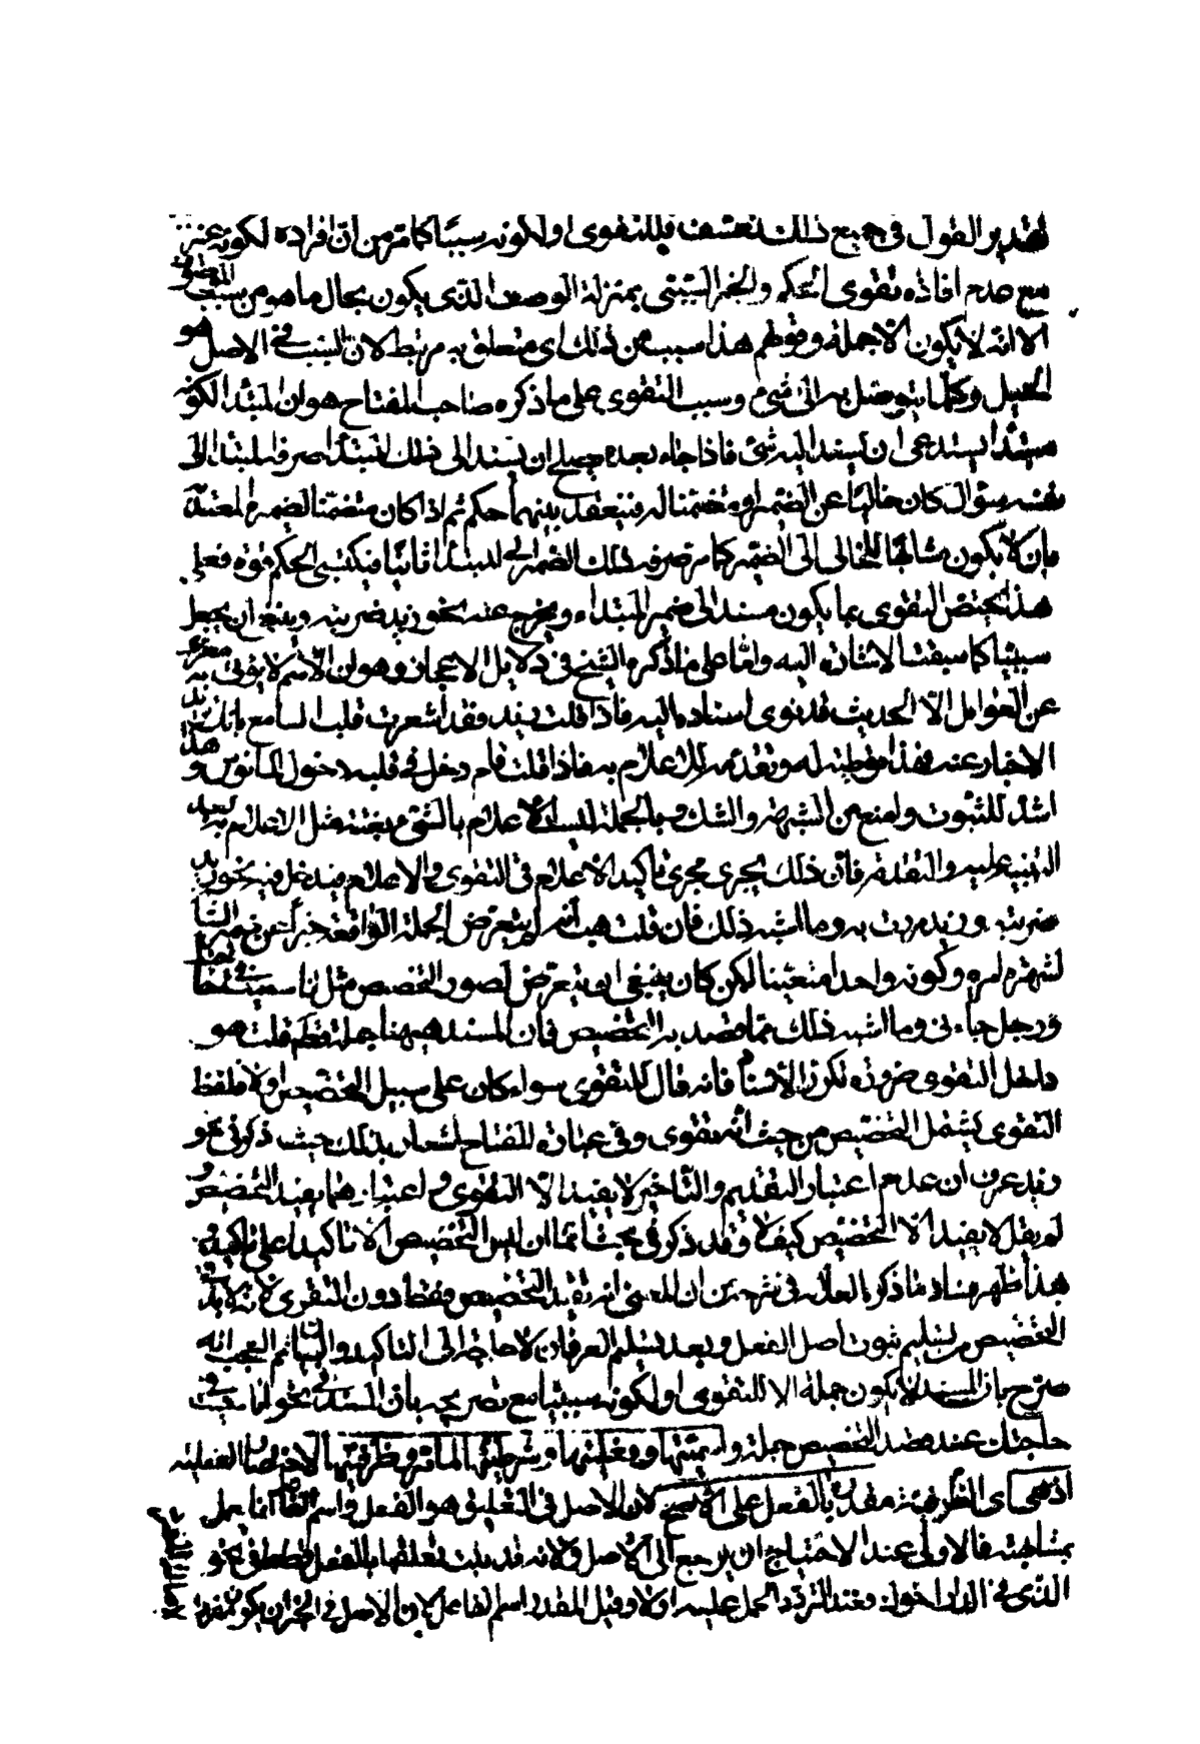 تقدير القول فى جميع ذلك تعسف فللتقوى او لكونه سببيا كما مر من ان افراده لكونه غير
مع عدم افادة تقوى الحكم والخبر السببى بمنزلة الوصف الذى يكون بحال ما هو من سبب الموصوف
الا انه لا يكون الا جملة وقولهم هذا سبب من ذلك اى متعلق به مرتبط لان السبب فى الاصل هو
الحبل وكل ما يتوصل به الى شىء وسبب التقوى على ما ذكره صاحب المفتاح هو ان المبتدأ لكونه
مبتدأ يستدعى ان يسند اليه شىء فاذا جاء بعده ما يصلح ان يسند الى ذلك المبتدأ صرفه المبتدأ الى
نفسه سواء كان خاليا عن الضمير او متضمنا له فينعقد بينهما حكم ثم اذا كان متضمنا لضميره المعتد به
بان لا يكون مشابها للخالى الى الضمير كما مر صرفه ذلك الضمير الى المبتدأ ثانيا فيكتسى الحكم قوة فعلى
هذا يختص التقوى بما يكون مسندا الى ضمير المبتدأ ويخرج عنه نحو زيد ضربته ويجب ان يجعل
سببيا كما سبقت الاشارة اليه واما على ما ذكره الشيخ فى دلائل الاعجاز وهو ان الاسم لا يؤتى به معرى
عن العوامل الا لحديث قد نوى اسناده اليه فاذا قلت زيد فقد اشعرت قلب السامع بانك تريد
الاخبار عنه فهذا توطئة له وتقدمة للاعلام به فاذا قلت قام دخل فى قلبه دخول المأنوس وهذا
اشد للثبوت وامنع من الشبهة والشك وبالجملة ليس الاعلام بالشىء بغتة مثل الاعلام به بعد
التنبيه عليه والتقدمة فان ذلك يجرى مجرى تأكيد الاعلام فى التقوى والاحكام فيدخل فيه نحو زيد
ضربته وزيد مررت به وما اشبه ذلك فان قلت هب انه لم يتعرض للجملة الواقعة خبرا عن ضمير الشان
لشهرة امره وكونه واحدا متعينا لكن كان ينبغى ان يتعرض لصور التخصيص مثل انا سعيت فى حاجتك
ورجل جاءنى وما اشبه ذلك مما قصد به التخصيص فان المسند ههنا جملة قطعا قلت هو
داخل فى التقوى ضرورة تكرر الاسناد فانه قال للتقوى سواء كان على سبيل التخصيص او لا فلفظ
التقوى يشمل التخصيص من حيث انه تقوى وفى عبارة المفتاح اشعار بذلك حيث ذكر فى نحو
زيد عرف ان عدم اعتبار التقديم والتأخير لا يفيد الا التقوى واعتبارهما يفيد التخصيص و
لم يقل لا يفيد الا التخصيص كيف لا وقد ذكر فى بحث انما ان ليس التخصيص الا تأكيدا على تأكيد و
بهذا ظهر فساد ما ذكره العلامة فى شرحه من ان المعنى انه يفيد التخصيص فقط دون التقوى لانه لا بد فى
التخصيص من تسليم ثبوت اصل الفعل وبعد تسليم العرفان لا حاجة الى التأكيد والبيان ثم العجب انه
صرح بان المسند لا يكون جملة الا للتقوى او لكونه سببيا مع تصريحه بان المسند فى نحو انا سعيت فى
حاجتك عند قصد التخصيص جملة واسميتها وفعليتها وشرطيتها لما مر وظرفيتها لاختصار الفعلية
اذ هى اى الظرفية مقدرة بالفعل على الاصح لان الاصل فى التعليق هو الفعل واسم الفاعل انما يعمل
بمشابهته فالاولى عند الاحتياج ان يرجع الى الاصل ولانه قد ثبت تعلقها بالفعل قطعا فى نحو
الذى فى الدار اخوك فعند التردد الحمل عليه اولى وقيل المقدر اسم الفاعل لان الاصل فى الخبر ان يكون مفردا